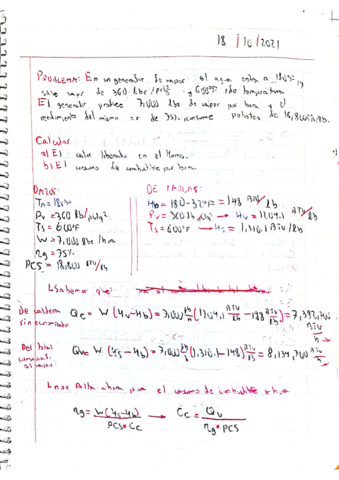 18 / 10 / 2021
PROBLEMA: En un generador de vapor el agua entra a 180°F,
sale vapor de 360 lbs/pulg² y 600°F de temperatura
El generador produce 7,000 lbs de vapor por hora y el
rendimiento del mismo es de 75%. consume de 18,800 BTU/lb.
Calcular
a) El calor liberado en el Horno.
b) El consumo de combustible por hora.
DATOS:
Tn = 180°F
Pv = 360 lb/pulg²
Ts = 600°F
W = 7,000 lbs/hora
ng = 75%
PCS = 18,800 BTU/lb
DE TABLAS:
Hb = 180-32°F = 148 BTU/lb
Pv = 360 lb/pulg² → Hv = 1204.1 BTU/lb
Ts = 600°F → Hs = 1,310.1 BTU/lb
Sabemos que:
De caldera sin
Qc = W (Hv-Hb) = 7,000 lb/h (1204.1 BTU/lb - 148 BTU/lb) = 7,392,700 BTU/h
Del total
Qv = W (Hs-Hb) = 7,000 lb/h (1,310.1-148) BTU/lb = 8,134,700 BTU/h
ahora para el consumo de combustible x hora
ng = W(Hs-Hb) / PCS*Cc → Cc = Qv / ng*PCS